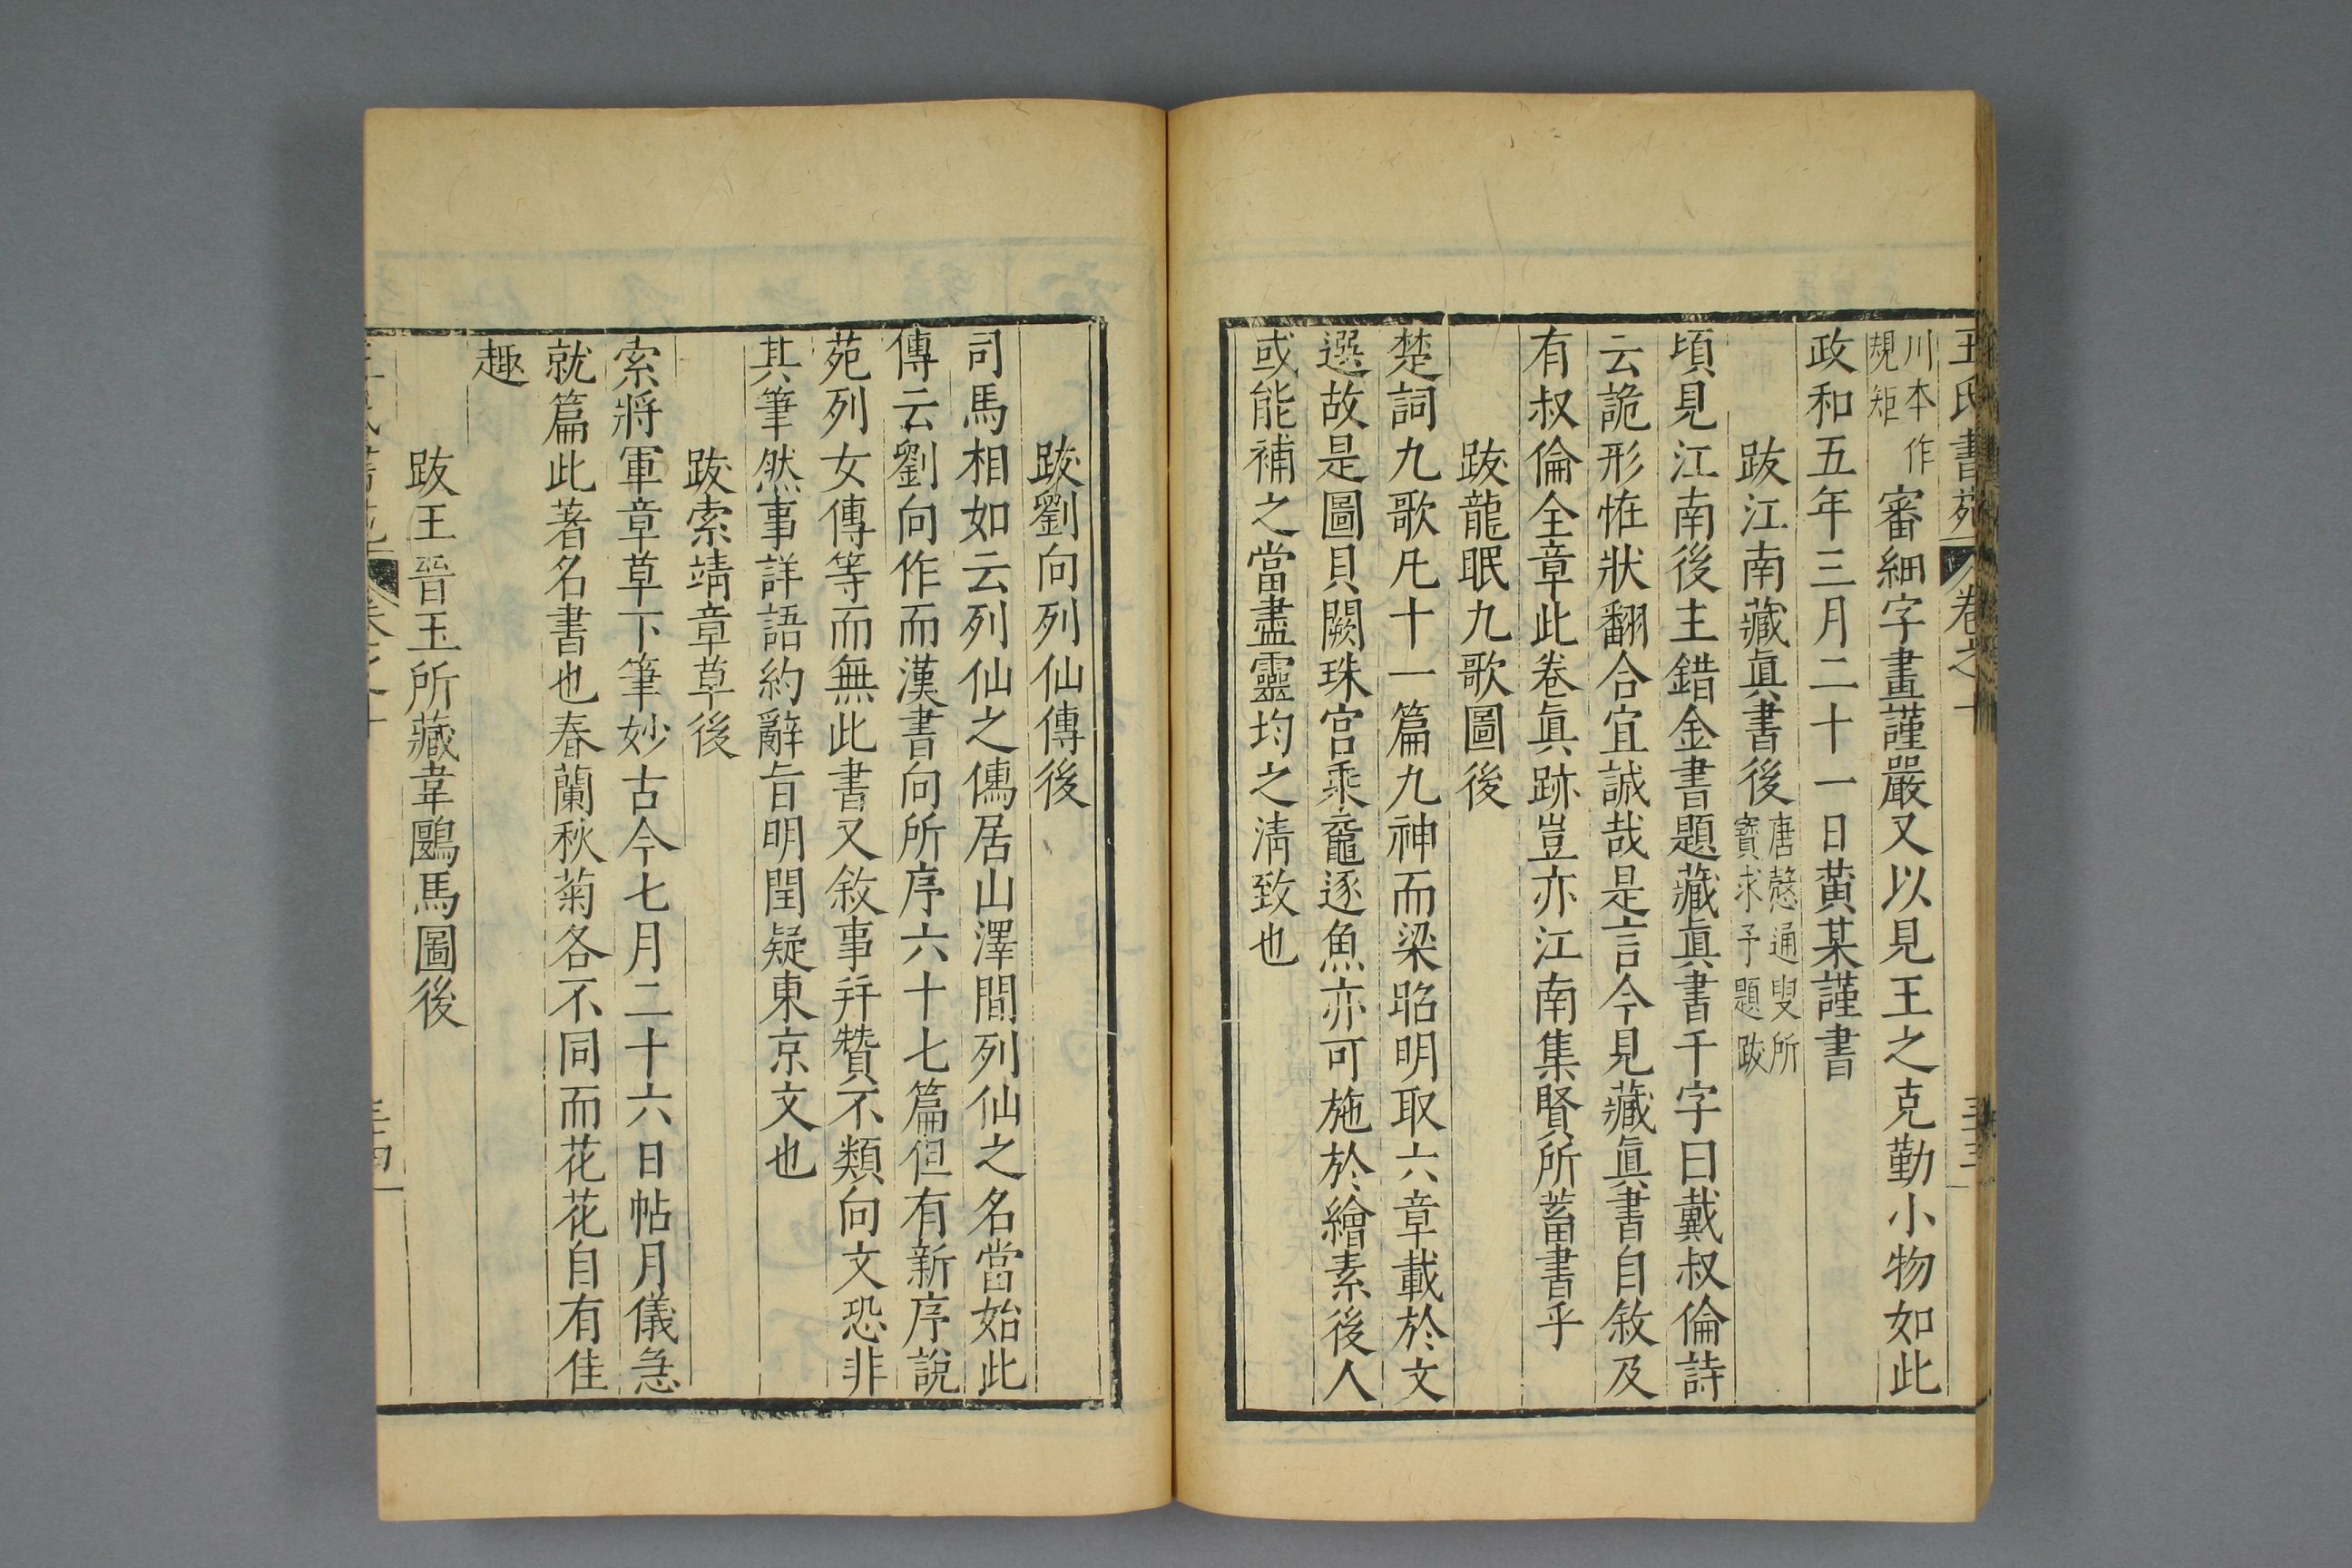 王氏書苑 卷之十 三十三
川本作規矩審細字畫謹嚴又以見王之克勤小物如此
政和五年三月二十一日黃某謹書
跋江南藏眞書後唐慤通叟所寶求予題跋
頃見江南後主錯金書題藏眞書千字曰戴叔倫詩
云詭形恠狀翻合宜誠哉是言今見藏眞書自敘及
有叔倫全章此卷眞跡豈亦江南集賢所蓄書乎
跋龍眠九歌圖後
楚詞九歌凡十一篇九神而梁昭明取六章載於文
選故是圖貝闕珠宮乘黿逐魚亦可施於繪素後人
或能補之當盡靈均之淸致也
跋劉向列仙傳後
司馬相如云列仙之儁居山澤間列仙之名當始此
傳云劉向作而漢書向所序六十七篇但有新序說
苑列女傳等而無此書又敘事幷贊不類向文恐非
其筆然事詳語約辭旨明閏疑東京文也
跋索靖章草後
索將軍章草下筆妙古今七月二十六日帖月儀急
就篇此著名書也春蘭秋菊各不同而花花自有佳
趣
跋王晉玉所藏韋鷗馬圖後